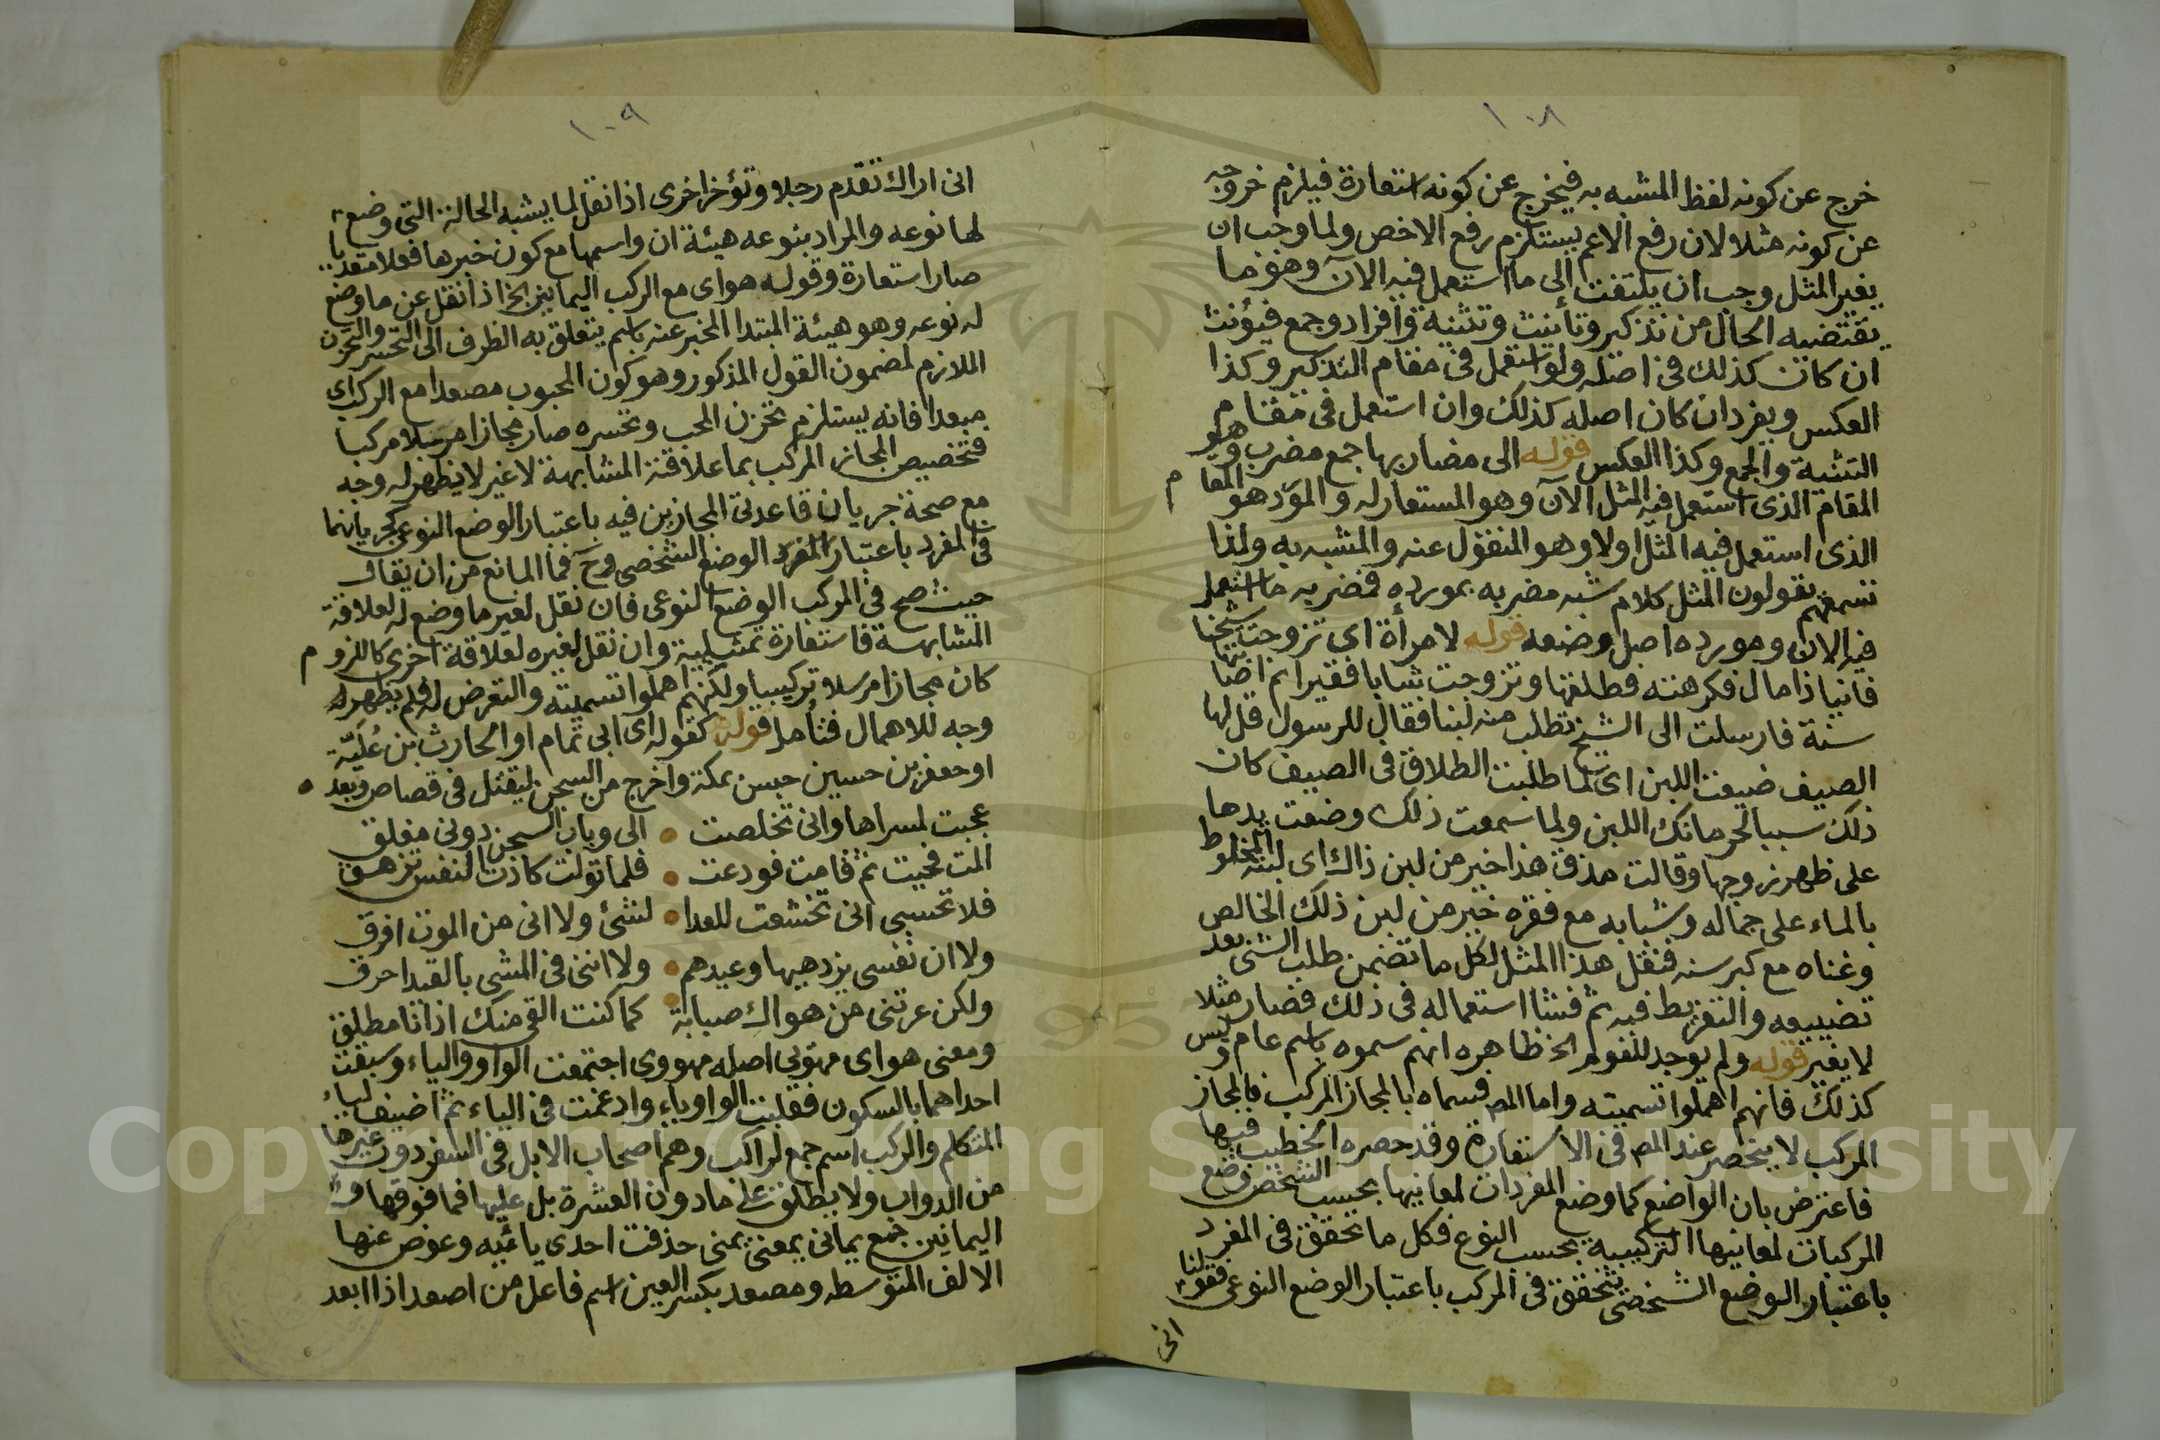 ١٠٨
خرج عن كونه لفظ المشبه به فيخرج عن كونه استعارة فيلزم خروجه
عن كونه مثلا لان رفع الاعم يستلزم رفع الاخص ولما وجب ان
يغير المثل وجب ان يلتفت الى ما استعمل فيه الآن وهو ما
يقتضيه الحال من تذكير وتأنيث وتثنية وافراد وجمع فيؤنث
ان كان كذلك في اصله ولو استعمل في مقام التذكير وكذا
العكس ويفرد ان كان اصله كذلك وان استعمل في مقام
التثنية والجمع وكذا العكس قوله الى مضاربها جمع مضرب وهو
المقام الذي استعمل فيه المثل الآن وهو المستعار له والمورد هو المقام
الذي استعمل فيه المثل اولا وهو المنقول عنه والمشبه به ولذا
تسمعهم يقولون المثل كلام شبه مضربه بمورده فمضربه ما استعمل
فيه الان ومورده اصل وضعه قوله لامرأة اي تزوجت شيخا
فانيا ذا مال فكرهته فطلقها وتزوجت شابا فقيرا ثم اصابتها
سنة فارسلت الى الشيخ تطلب منه لبنا فقال للرسول قل لها
الصيف ضيعت اللبن اي لما طلبت الطلاق في الصيف كان
ذلك سببا لحرمانك اللبن ولما سمعت ذلك وضعت يدها
على ظهر زوجها وقالت مذق هذا خير من لبن ذاك اي لبنه المخلوط
بالماء على جماله وشبابه مع فقره خير من لبن ذلك الخالص
وغناه مع كبر سنه فنقل هذا المثل لكل ما تضمن طلب الشئ بعد
تضييعه والتفريط فيه ثم فشا استعماله في ذلك فصار مثلا
لا يغير قوله ولم يوجد للقوم الخ ظاهره انهم سموه باسم عام وليس
كذلك فانهم اهملوا تسميته واما المص فسماه بالمجاز المركب فالمجاز
المركب لا ينحصر عند المص في الاستعارة وقد حصره الخطيب فيها
فاعترض بان الواضع كما وضع المفردات لمعانيها بحسب الشخص وضع
المركبات لمعانيها التركيبية بحسب النوع فكل ما تحقق في المفرد
باعتبار الوضع الشخصي يتحقق في المركب باعتبار الوضع النوعي فقولنا
انى
١٠٩
انى اراك تقدم رجلا وتؤخر اخرى اذا نقل لما يشبه الحالة التي وضع
لها نوعه والمراد بنوعه هيئة ان واسمها مع كون خبرها فعلا متعديا
صار استعارة وقوله هواى مع الركب اليمانين الخ اذا نقل عن ما وضع
له نوعه وهو هيئة المبتدا المخبر عنه باسم يتعلق به الظرف الى التحسر والتحزن
اللازم لمضمون القول المذكور وهو كون المحبوب مصعدا مع الركب اى
مبعدا فانه يستلزم تحزن المحب وتحسره صار مجازا مرسلا مركبا
فتخصيص المجاز المركب بما علاقته المشابهة لا غير لا يظهر له وجه
مع صحة جريان قاعدتى المجازين فيه باعتبار الوضع النوعى كجريانهما
في المفرد باعتبار المفرد الوضع الشخصي وح فما المانع من ان يقال
حيث صح في المركب الوضع النوعى فان نقل لغير ما وضع له لعلاقة
المشابهة فاستعارة تمثيلية وان نقل لغيره لعلاقة اخرى كاللزوم
كان مجازا مرسلا تركيبيا ولكنهم اهملوا تسميته والتعرض له فلم يظهر له
وجه للاهمال فتأمل قوله كقوله اى ابى تمام او الحارث بن عُلَيّة
او جعفر بن حسين حبس بمكة واخرج من السجن ليقتل في قصاص وبعد
عجبت لمسراها وانى تخلصت • الى وباب السجن دونى مغلق
المت فحيت ثم قامت فودعت • فلما تولت كادت النفس تزهق
فلا تحسبى انى تخشعت للعدا • لشئ ولا انى من الموت افرق
ولا ان نفسى يزدهيها وعيدهم • ولا اننى في المشى بالقيد احرق
ولكن عرتنى من هواك صبابة • كما كنت القى منك اذ انا مطلق
ومعنى هواى مهويى اصله مهووى اجتمعت الواو والياء وسبقت
احداهما بالسكون فقلبت الواو ياء وادغمت في الياء ثم اضيف لياء
المتكلم والركب اسم جمع لراكب وهم اصحاب الابل في السفر دون غيرها
من الدواب ولا يطلق على ما دون العشرة بل عليها فما فوقها و
اليمانين جمع يمانى بمعنى يمنى حذفت احدى يائيه وعوض عنها
الالف المتوسطه ومصعد بكسر العين اسم فاعل من اصعد اذا ابعد
Copyright © King Saud University